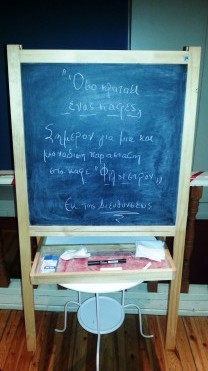 "Όσο κρατάει
ένας καφές"
Σήμερον για μια και
μοναδική παράσταση
στο καφέ "Φιλοίστρον",
Εκ της Διευθύνσεως